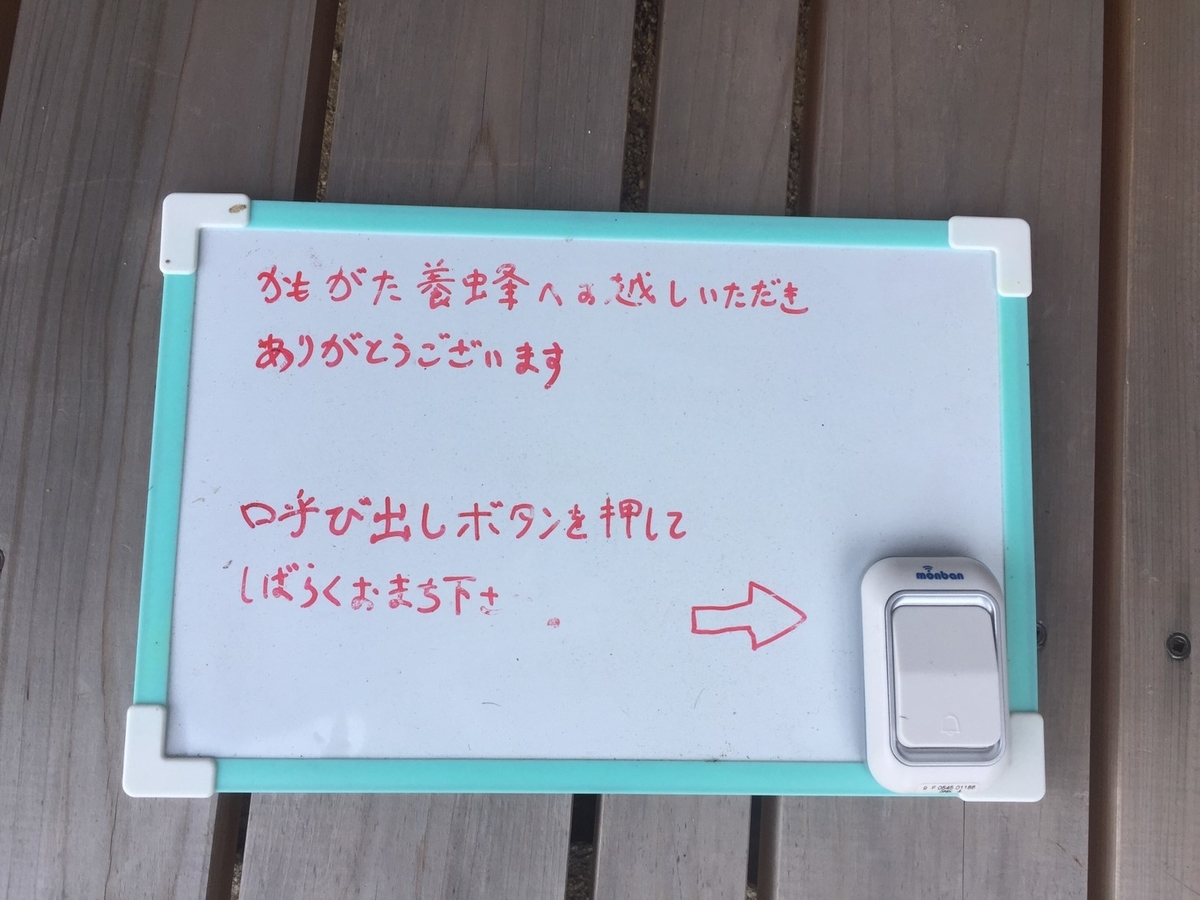 かもがた養蜂へお越しいただき
ありがとうございます
口呼び出しボタンを押して
しばらくおまち下さ 。
monban